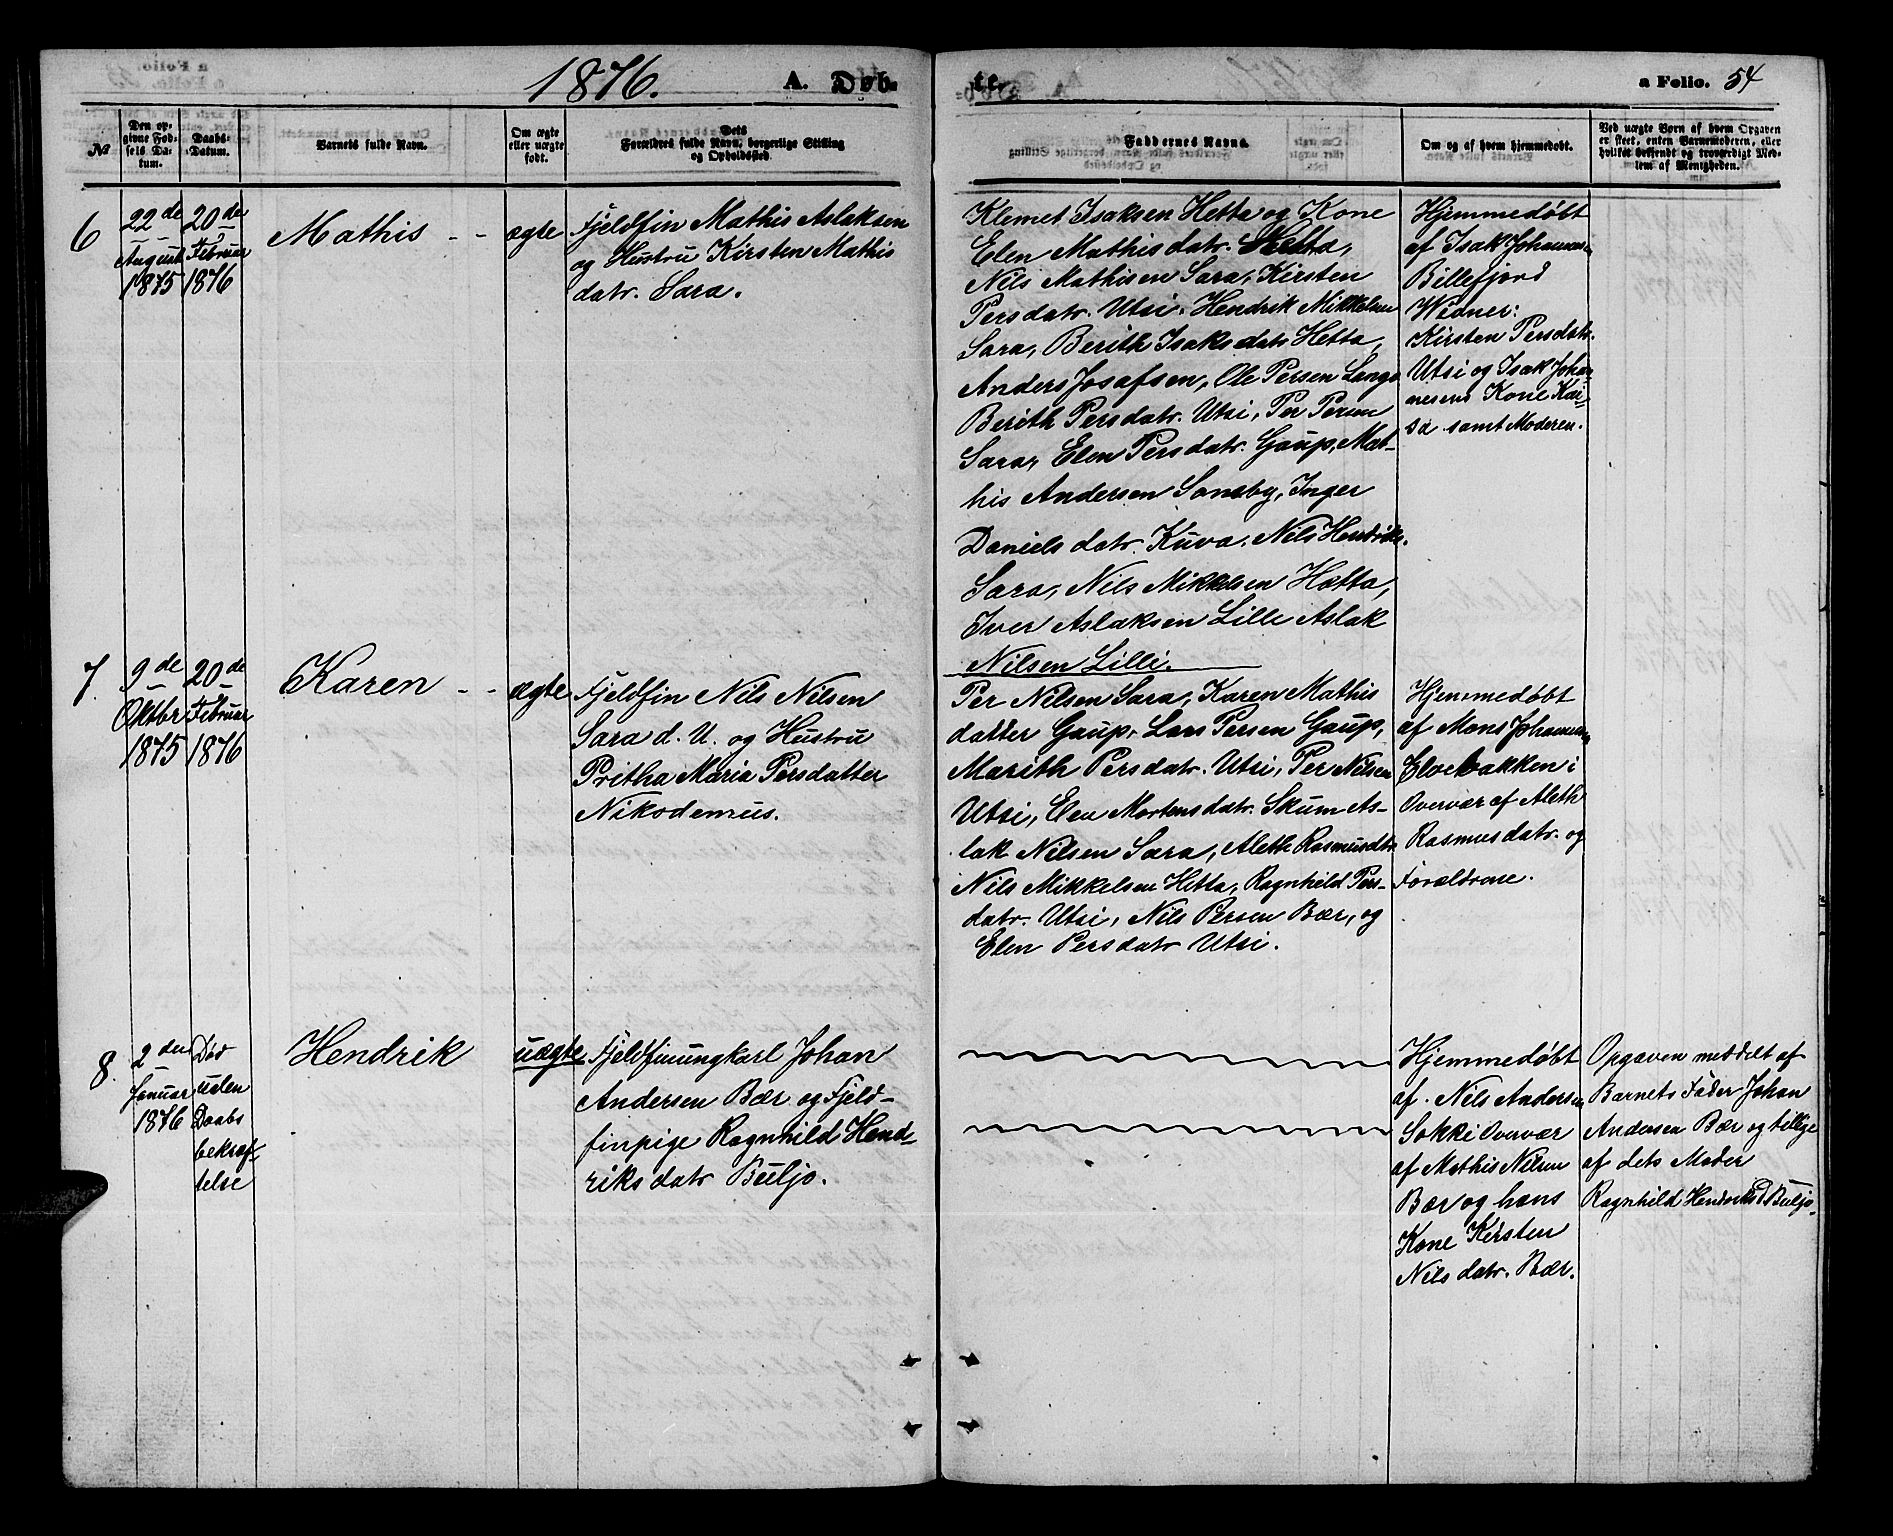 1876.
A. Døb-
te.
a Folio. 54
№
Den op-
givne Fød-
sels Da-
tum.
Daabs-
Datum.
Barnets fulde Navn.
Om ægte
eller uægte
født.
Dets
Forældres fulde Navn, borgerlige Stilling
og Opholdssted.
Faddernes Navne.
Om og af hvem hjemmedøbt.
Ved uægte Børn af hvem Opgaven
er skeet, enten Barnemoderen, eller
hvilket bekjendt og troværdigt Med-
lem af Menigheden.
6
22de
August
1875
20de
Februar
1876
Mathis - -
ægte
Fjeldfin Mathis Aslaksen
og Hustru Kirsten Mathis
datr. Sara.
Klemet Isaksen Hetta og Kone
Elen Mathisdatr. Hetta,
Nils Mathisen Sara, Kirsten
Persdatr. Utsi, Hendrik Mikkelsen
Sara, Berith Isaksdatr Hetta,
Anders Josafsen, Ole Persen Lango
Berith Persdatr. Utsi, Per Persen
Sara, Elen Persdatr. Gaup, Mat-
his Andersen Somby, Inger
Daniels datr. Kuva, Nils Hendriks.
Sara, Nils Mikkelsen Hætta,
Iver Aslaksen Lille Aslak
Nilsen Lilli.
Hjemmedøbt
af Isak Johannesen
Billefjord
Widner:
Kirsten Persdatr.
Utsi og Isak Johan-
nesens Kone Kai-
sa samt Moderen.
7.
9de
Oktbr
1875
20de
Februar
1876
Karen - -
ægte
Fjeldfin Nils Nilsen
Sara d. U. og Hustru
Pritha Maria Persdatter
Nikodemus.
Per Nilsen Sara, Karen Mathis
datter Gaup, Lars Persen Gaup,
Marith Persdatr. Utsi, Per Nilsen
Utsi, Elen Mortensdatr. Skum As-
lak Nilsen Sara, Aleth Rasmusdtr.
Nils Mikkelsen Hetta, Ragnhild Pers-
datr. Utsi, Nils Persen Bær, og
Elen Persdatr Utsi.
Hjemmedøbt
af Mons Johannesen
Elvebakken i
Overvær af Aleth
Rasmusdatr. og
Forældrene.
8.
2den
Januar
1876
Død
uden
Daabs
bekræf-
telse
Hendrik
uægte
Fjeldfinungkarl Johan
Andersen Bær og Fjeld-
finpige Ragnhild Hend-
riksdatr Buljo.
Hjemmedøbt
af. Nils Andersen
Sokki Overvær
af Mathis Nilsen
Bær og hans
Kone Kirsten
Nilsdatr. Bær.
Opgaven meddelt af
Barnets Fader Johan
Andersen Bær og tillige
af dets Moder
Ragnhild Henriksd Buljo.